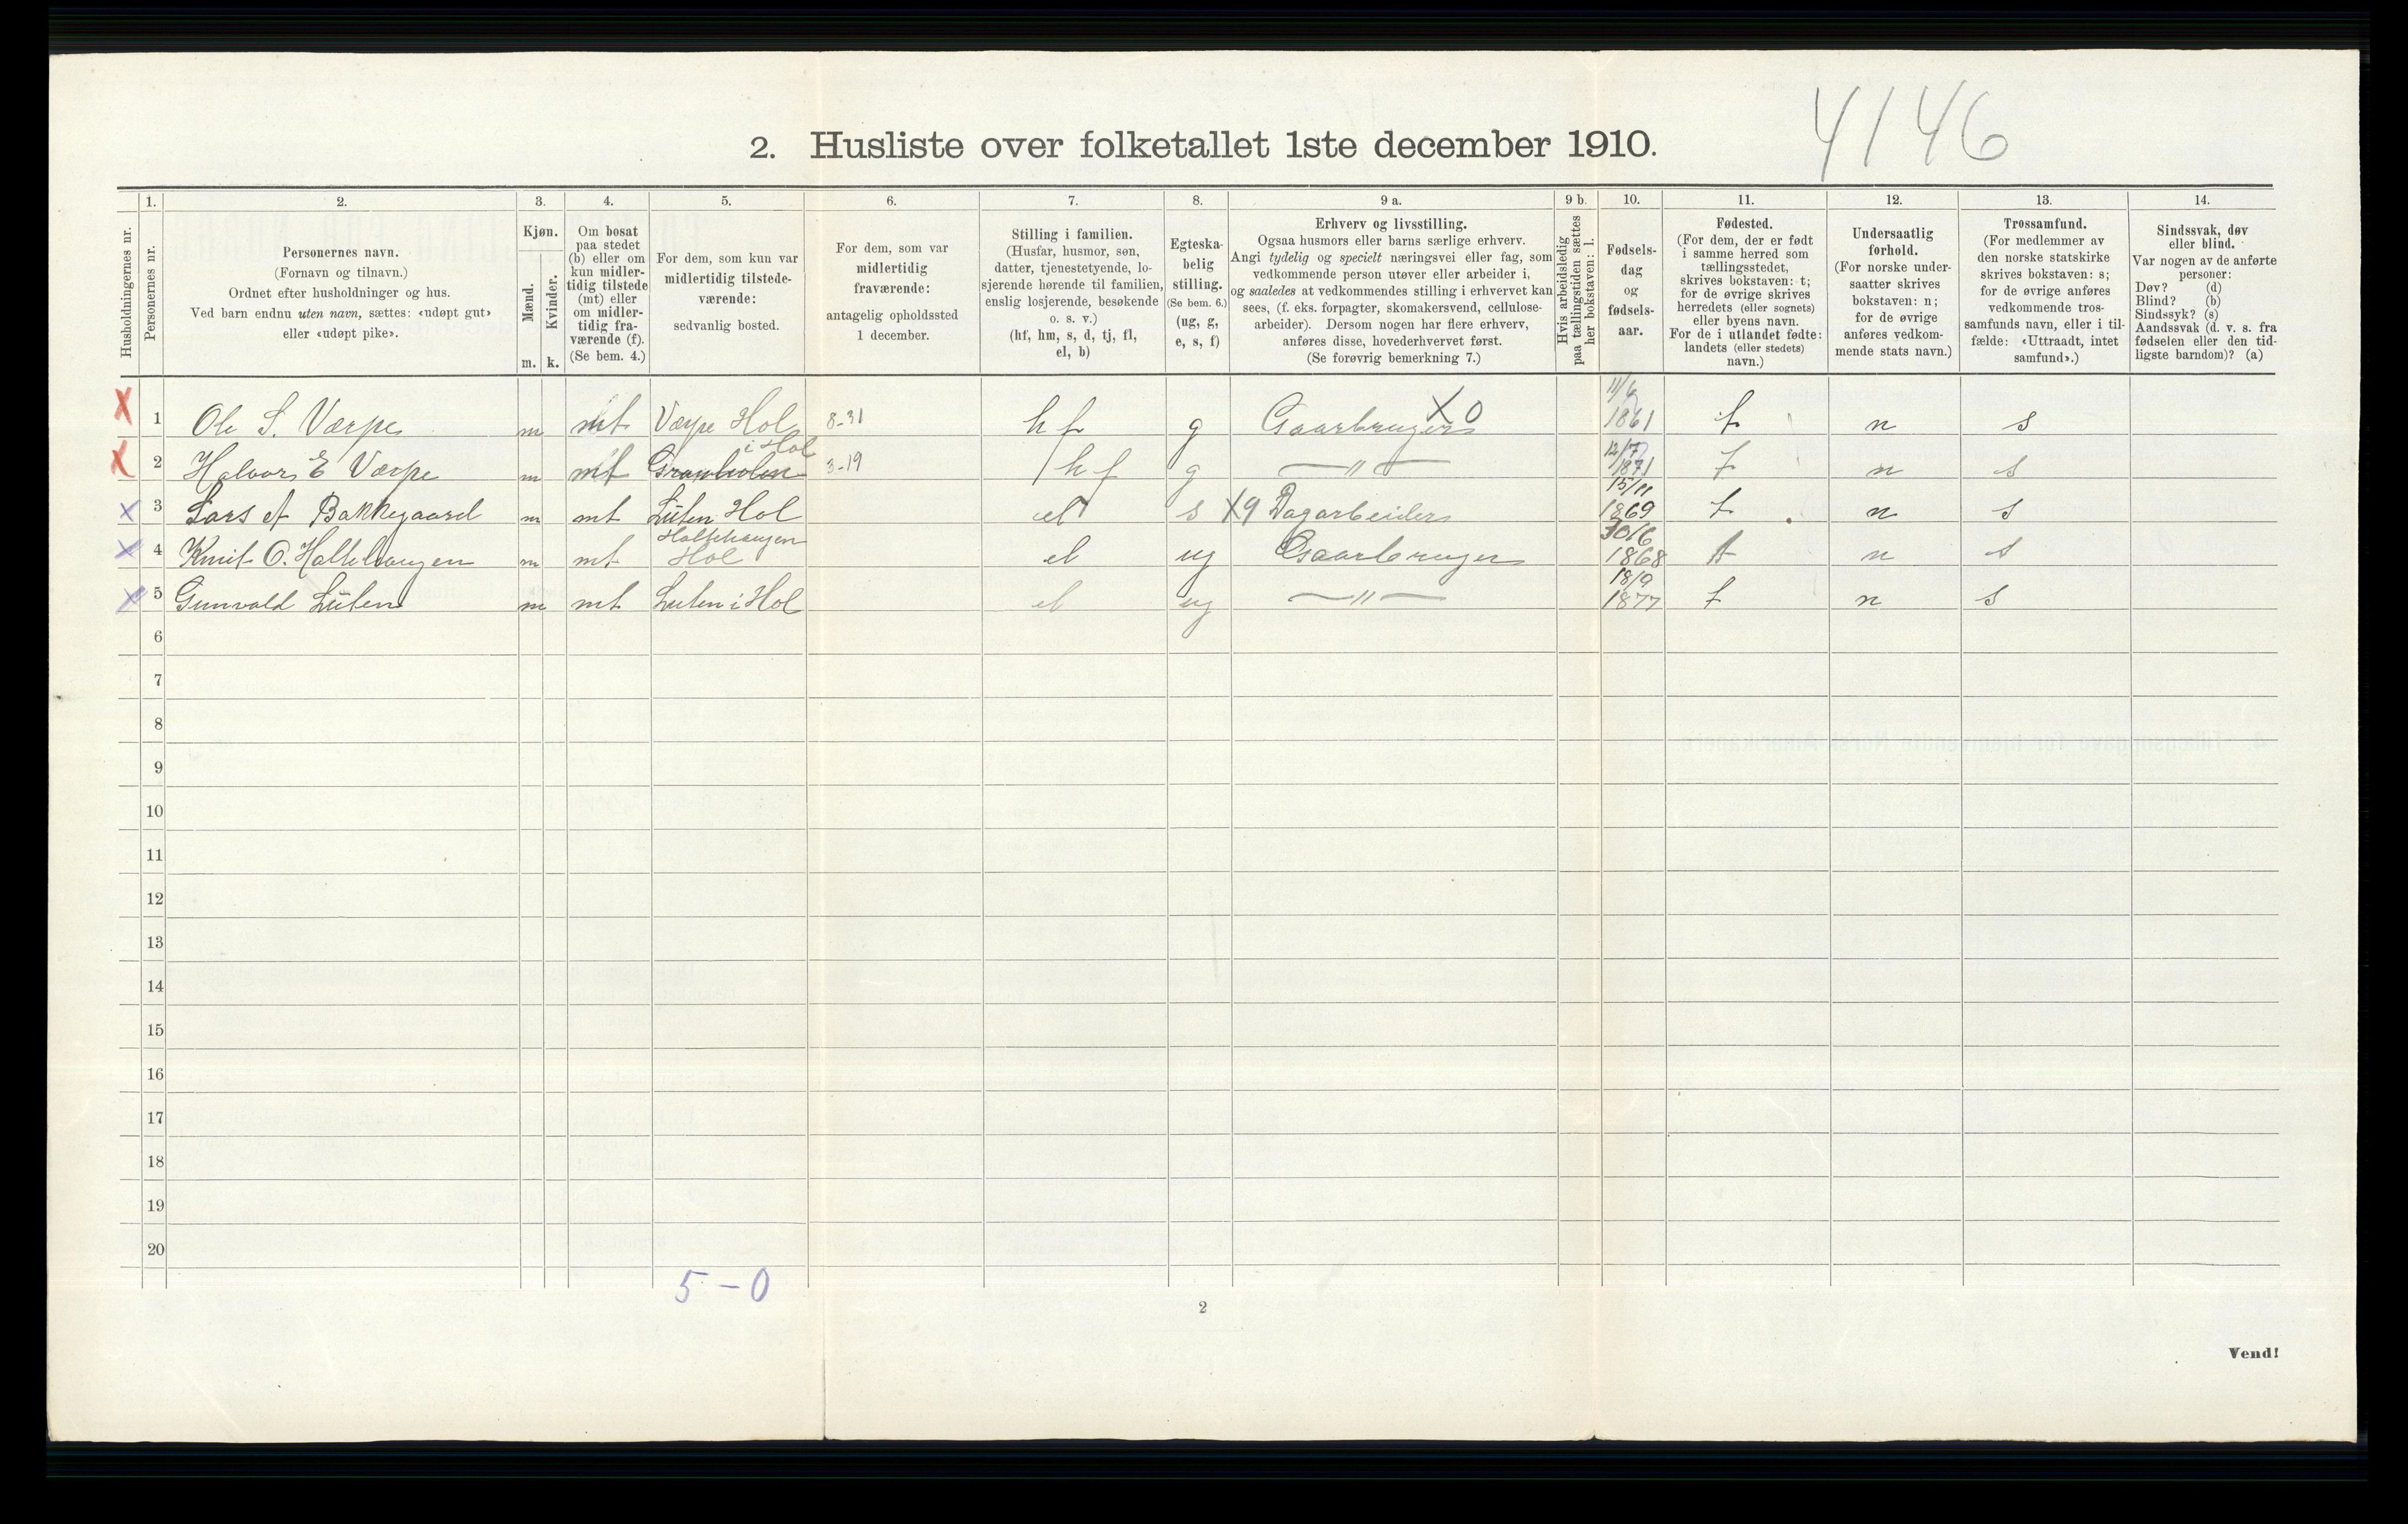 4146
2. Husliste over folketallet 1ste december 1910.
Husholdningernes nr.
1.
Personernes nr.
2.
Personernes navn.
(Fornavn og tilnavn.)
Ordnet efter husholdninger og hus.
Ved barn endnu uten navn, sættes: «udøpt gut»
eller «udøpt pike».
3.
Kjøn.
Mænd.
Kvinder.
m. k.
4.
Om bosat
paa stedet
(b) eller om
kun midler-
tidig tilstede
(mt) eller
om midler-
tidig fra-
værende (f).
(Se bem. 4.)
5.
For dem, som kun var
midlertidig tilstede-
værende:
sedvanlig bosted.
6.
For dem, som var
midlertidig
fraværende:
antagelig opholdssted
1 december.
7.
Stilling i familien.
(Husfar, husmor, søn,
datter, tjenestetyende, lo-
sjerende hørende til familien,
enslig losjerende, besøkende
o. s. v.)
(hf, hm, s, d, tj, fl,
el, b)
8.
Egteska-
belig
stilling.
(Se bem. 6.)
(ug, g,
e, s, f)
9 a.
Erhverv og livsstilling.
Ogsaa husmors eller barns særlige erhverv.
Angi tydelig og specielt næringsvei eller fag, som
vedkommende person utøver eller arbeider i,
og saaledes at vedkommendes stilling i erhvervet kan
sees, (f. eks. forpagter, skomakersvend, cellulose-
arbeider). Dersom nogen har flere erhverv,
anføres disse, hovederhvervet først.
(Se forøvrig bemerkning 7.)
9 b.
Hvis arbeidsledig
paa tællingstiden sættes
her bokstaven: l.
10.
Fødsels-
dag
og
fødsels-
aar.
11.
Fødested.
(For dem, der er født
i samme herred som
tællingsstedet,
skrives bokstaven: t;
for de øvrige skrives
herredets (eller sognets)
eller byens navn.
For de i utlandet fødte:
landets (eller stedets)
navn.)
12.
Undersaatlig
forhold.
(For norske under-
saatter skrives
bokstaven: n;
for de øvrige
anføres vedkom-
mende stats navn.)
13.
Trossamfund.
(For medlemmer av
den norske statskirke
skrives bokstaven: s;
for de øvrige anføres
vedkommende tros-
samfunds navn, eller i til-
fælde: «Uttraadt, intet
samfund».)
14.
Sindssvak, døv
eller blind.
Var nogen av de anførte
personer:
Døv? (d)
Blind? (b)
Sindssyk? (s)
Aandssvak (d. v. s. fra
fødselen eller den tid-
ligste barndom)? (a)
X 1 Ole S. Værpe m mt Værpe Hol 8-31 hf g Gaarbruger X0 11/6 1861 t n s
X 2 Halvor E Værpe m mt i Hol 3-19 hf g —"— 12/7 1871 t n s
X 3 Lars A Bakkegaard m mt Lüten Hol el s X9 Dagarbeider 15/11 1869 t n s
X 4 Knut O. Hallehaugen m mt Hol el ug Gaarbruger 30/6 1868 t n s
X 5 Gunvald Lüten m mt Luten i Hol el ug —"— 18/9 1877 t n s
6
7
8
9
10
11
12
13
14
15
16
17
18
19
20
5-0
2
Vend!